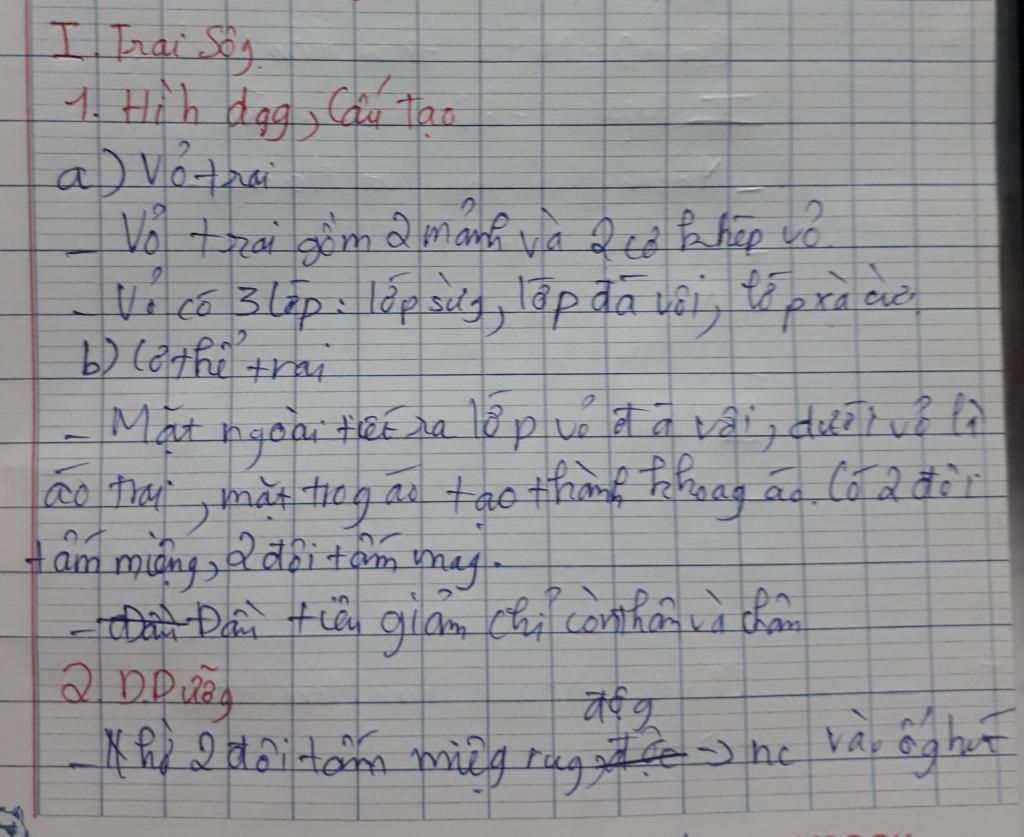 I. Trai Sôg.
1. Hìh dạg, Cấu tạo
a) Vỏ trai
- Vỏ trai gồm 2 mảnh và 2 cơ khép vỏ.
- Vỏ có 3 lớp: lớp sừg, lớp đá vôi, lớp xà cừ.
b) Cơ thể trai
- Mặt ngoài tiết ra lớp vỏ đá vôi, dưới vỏ là
áo trai, mặt trog áo tạo thành khoag áo. Có 2 đôi
tấm miệng, 2 đôi tấm mag.
- Đầu tiêu giảm chỉ còn thân và chân
2. D.Dưỡg
độg
- Khi 2 đôi tấm miệg rug → nc vào ốg hút